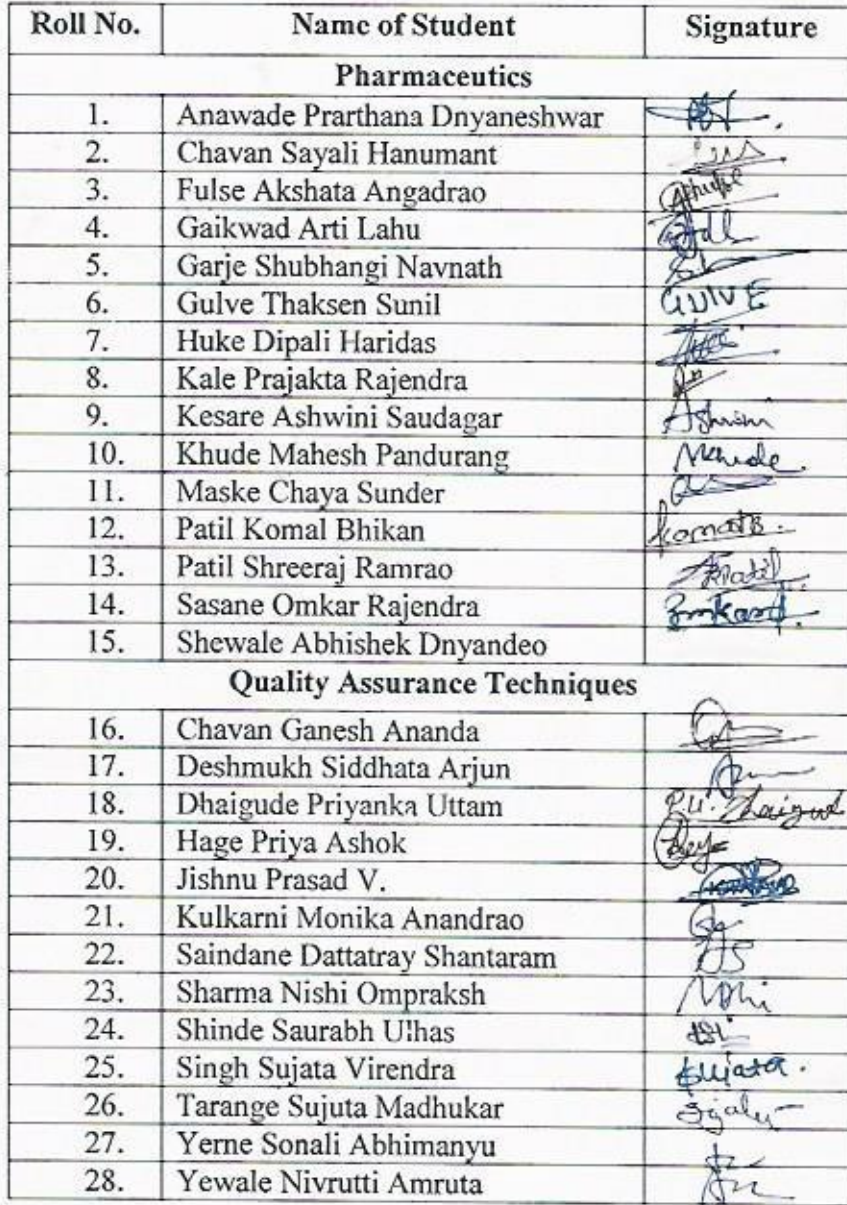 Roll No. Name of Student Signature
Pharmaceutics
1. Anawade Prarthana Dnyaneshwar
2. Chavan Sayali Hanumant
3. Fulse Akshata Angadrao
4. Gaikwad Arti Lahu
5. Garje Shubhangi Navnath
6. Gulve Thaksen Sunil GULVE
7. Huke Dipali Haridas
8. Kale Prajakta Rajendra
9. Kesare Ashwini Saudagar Ashwini
10. Khude Mahesh Pandurang
11. Maske Chaya Sunder
12. Patil Komal Bhikan
13. Patil Shreeraj Ramrao
14. Sasane Omkar Rajendra
15. Shewale Abhishek Dnyandeo
Quality Assurance Techniques
16. Chavan Ganesh Ananda
17. Deshmukh Siddhata Arjun
18. Dhaigude Priyanka Uttam P.U.
19. Hage Priya Ashok
20. Jishnu Prasad V.
21. Kulkarni Monika Anandrao
22. Saindane Dattatray Shantaram
23. Sharma Nishi Ompraksh
24. Shinde Saurabh Ulhas
25. Singh Sujata Virendra Sujata.
26. Tarange Sujuta Madhukar
27. Yerne Sonali Abhimanyu
28. Yewale Nivrutti Amruta